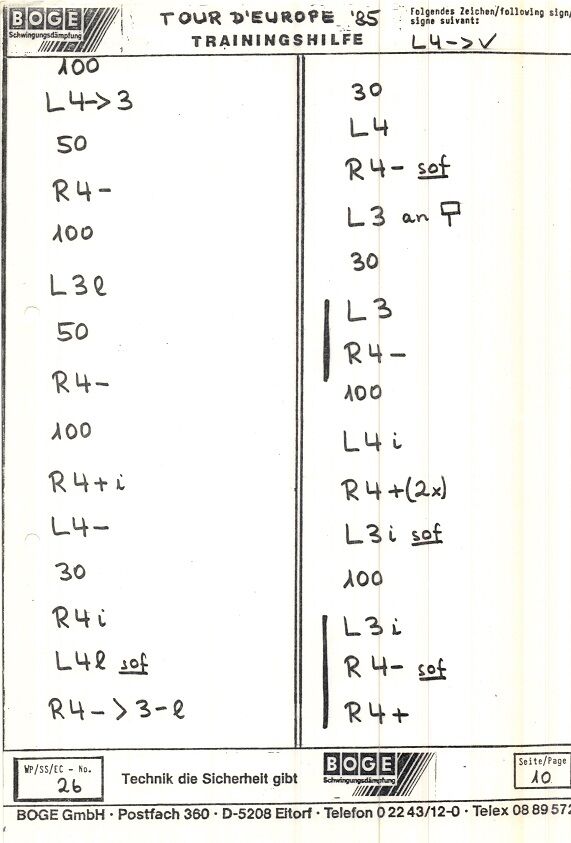 BOGE
Schwingungsdämpfung
TOUR D'EUROPE '85
TRAININGSHILFE
Folgendes Zeichen/following sign/
signe suivant:
L4->✓
100
L4->3
50
R4-
100
L3l
50
R4-
100
R4+i
L4-
30
R4i
L4l sof
R4->3-l
30
L4
R4- sof
L3 an
30
L3
R4-
100
L4i
R4+(2x)
L3i sof
100
L3i
R4- sof
R4+
WP/SS/EC - No.
26
Technik die Sicherheit gibt
BOGE
Schwingungsdämpfung
Seite/Page
10
BOGE GmbH · Postfach 360 · D-5208 Eitorf · Telefon 0 22 43/12-0 · Telex 08 89 572